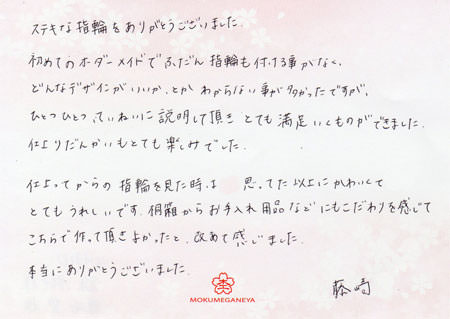 ステキな指輪をありがとうございました。
初めてのオーダーメイドでふだん指輪も付ける事がなく、
どんなデザインがいいか、とか わからない事が多かったですが、
ひとつひとつ、ていねいに説明して頂き とても満足いくものができました。
仕上りだんかいもとても楽しみでした。
仕上ってからの指輪を見た時は 思ってた以上にかわいくて
とてもうれしいです。桐箱からお手入れ用品などにもこだわりを感じて
こちらで作って頂きよかったと、改めて感じました。
本当にありがとうございました。
MOKUMEGANEYA
藤崎